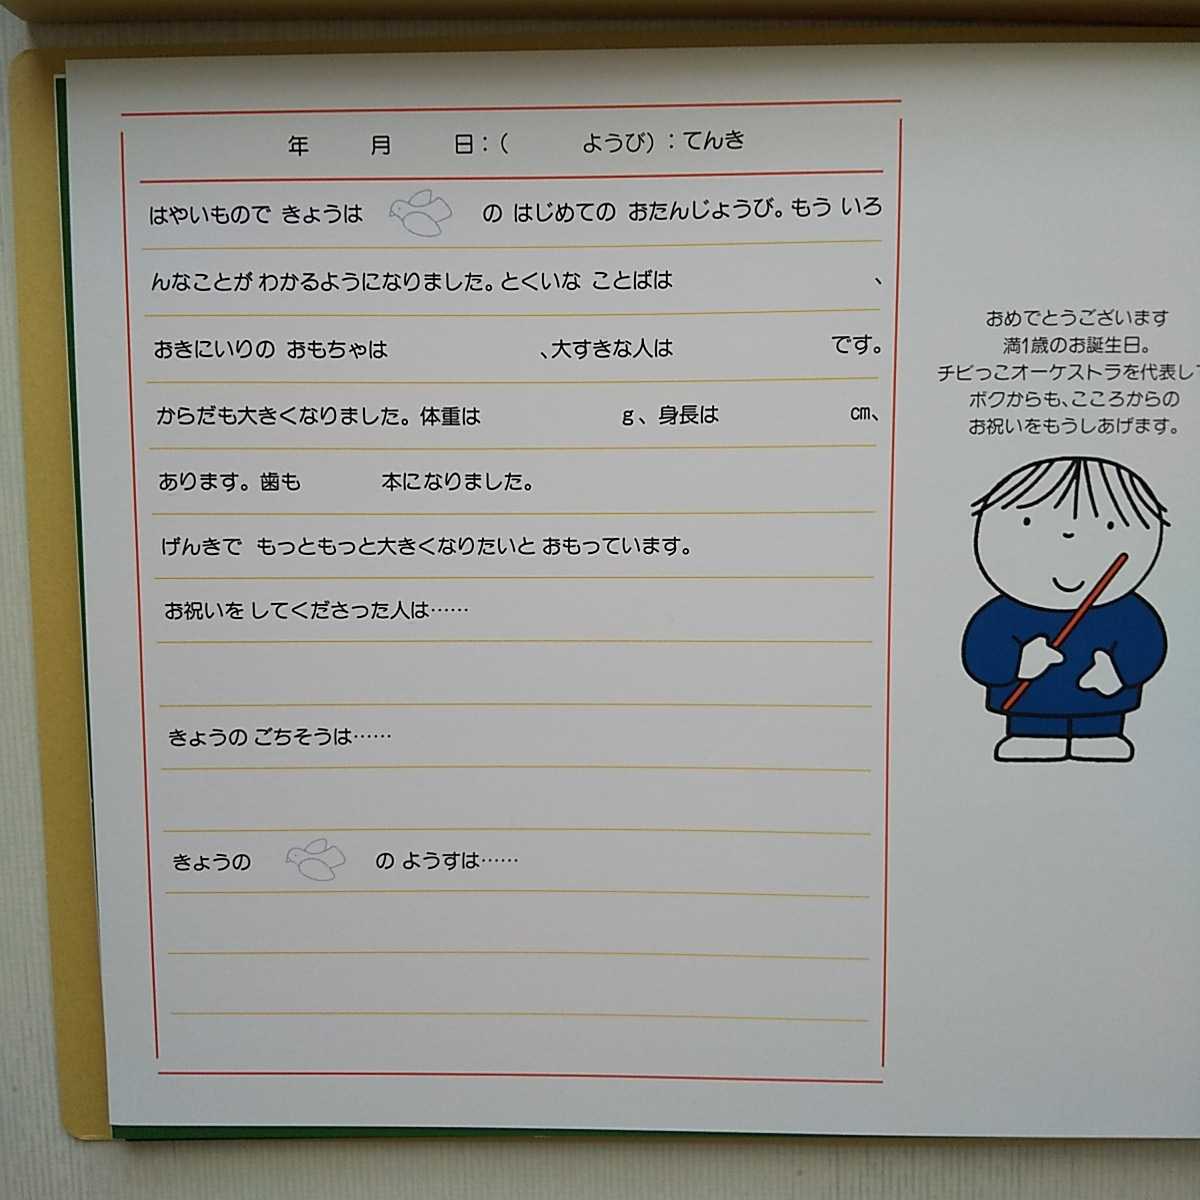 年 月 日：( ようび)：てんき
はやいもので きょうは の はじめての おたんじょうび。もう いろ
んなことが わかるようになりました。とくいな ことばは 、
おきにいりの おもちゃは 、大すきな人は です。
からだも大きくなりました。体重は g、身長は cm、
あります。歯も 本になりました。
げんきで もっともっと大きくなりたいと おもっています。
お祝いを してくださった人は……
きょうの ごちそうは……
きょうの の ようすは……
おめでとうございます
満1歳のお誕生日。
チビっこオーケストラを代表して
ボクからも、こころからの
お祝いをもうしあげます。